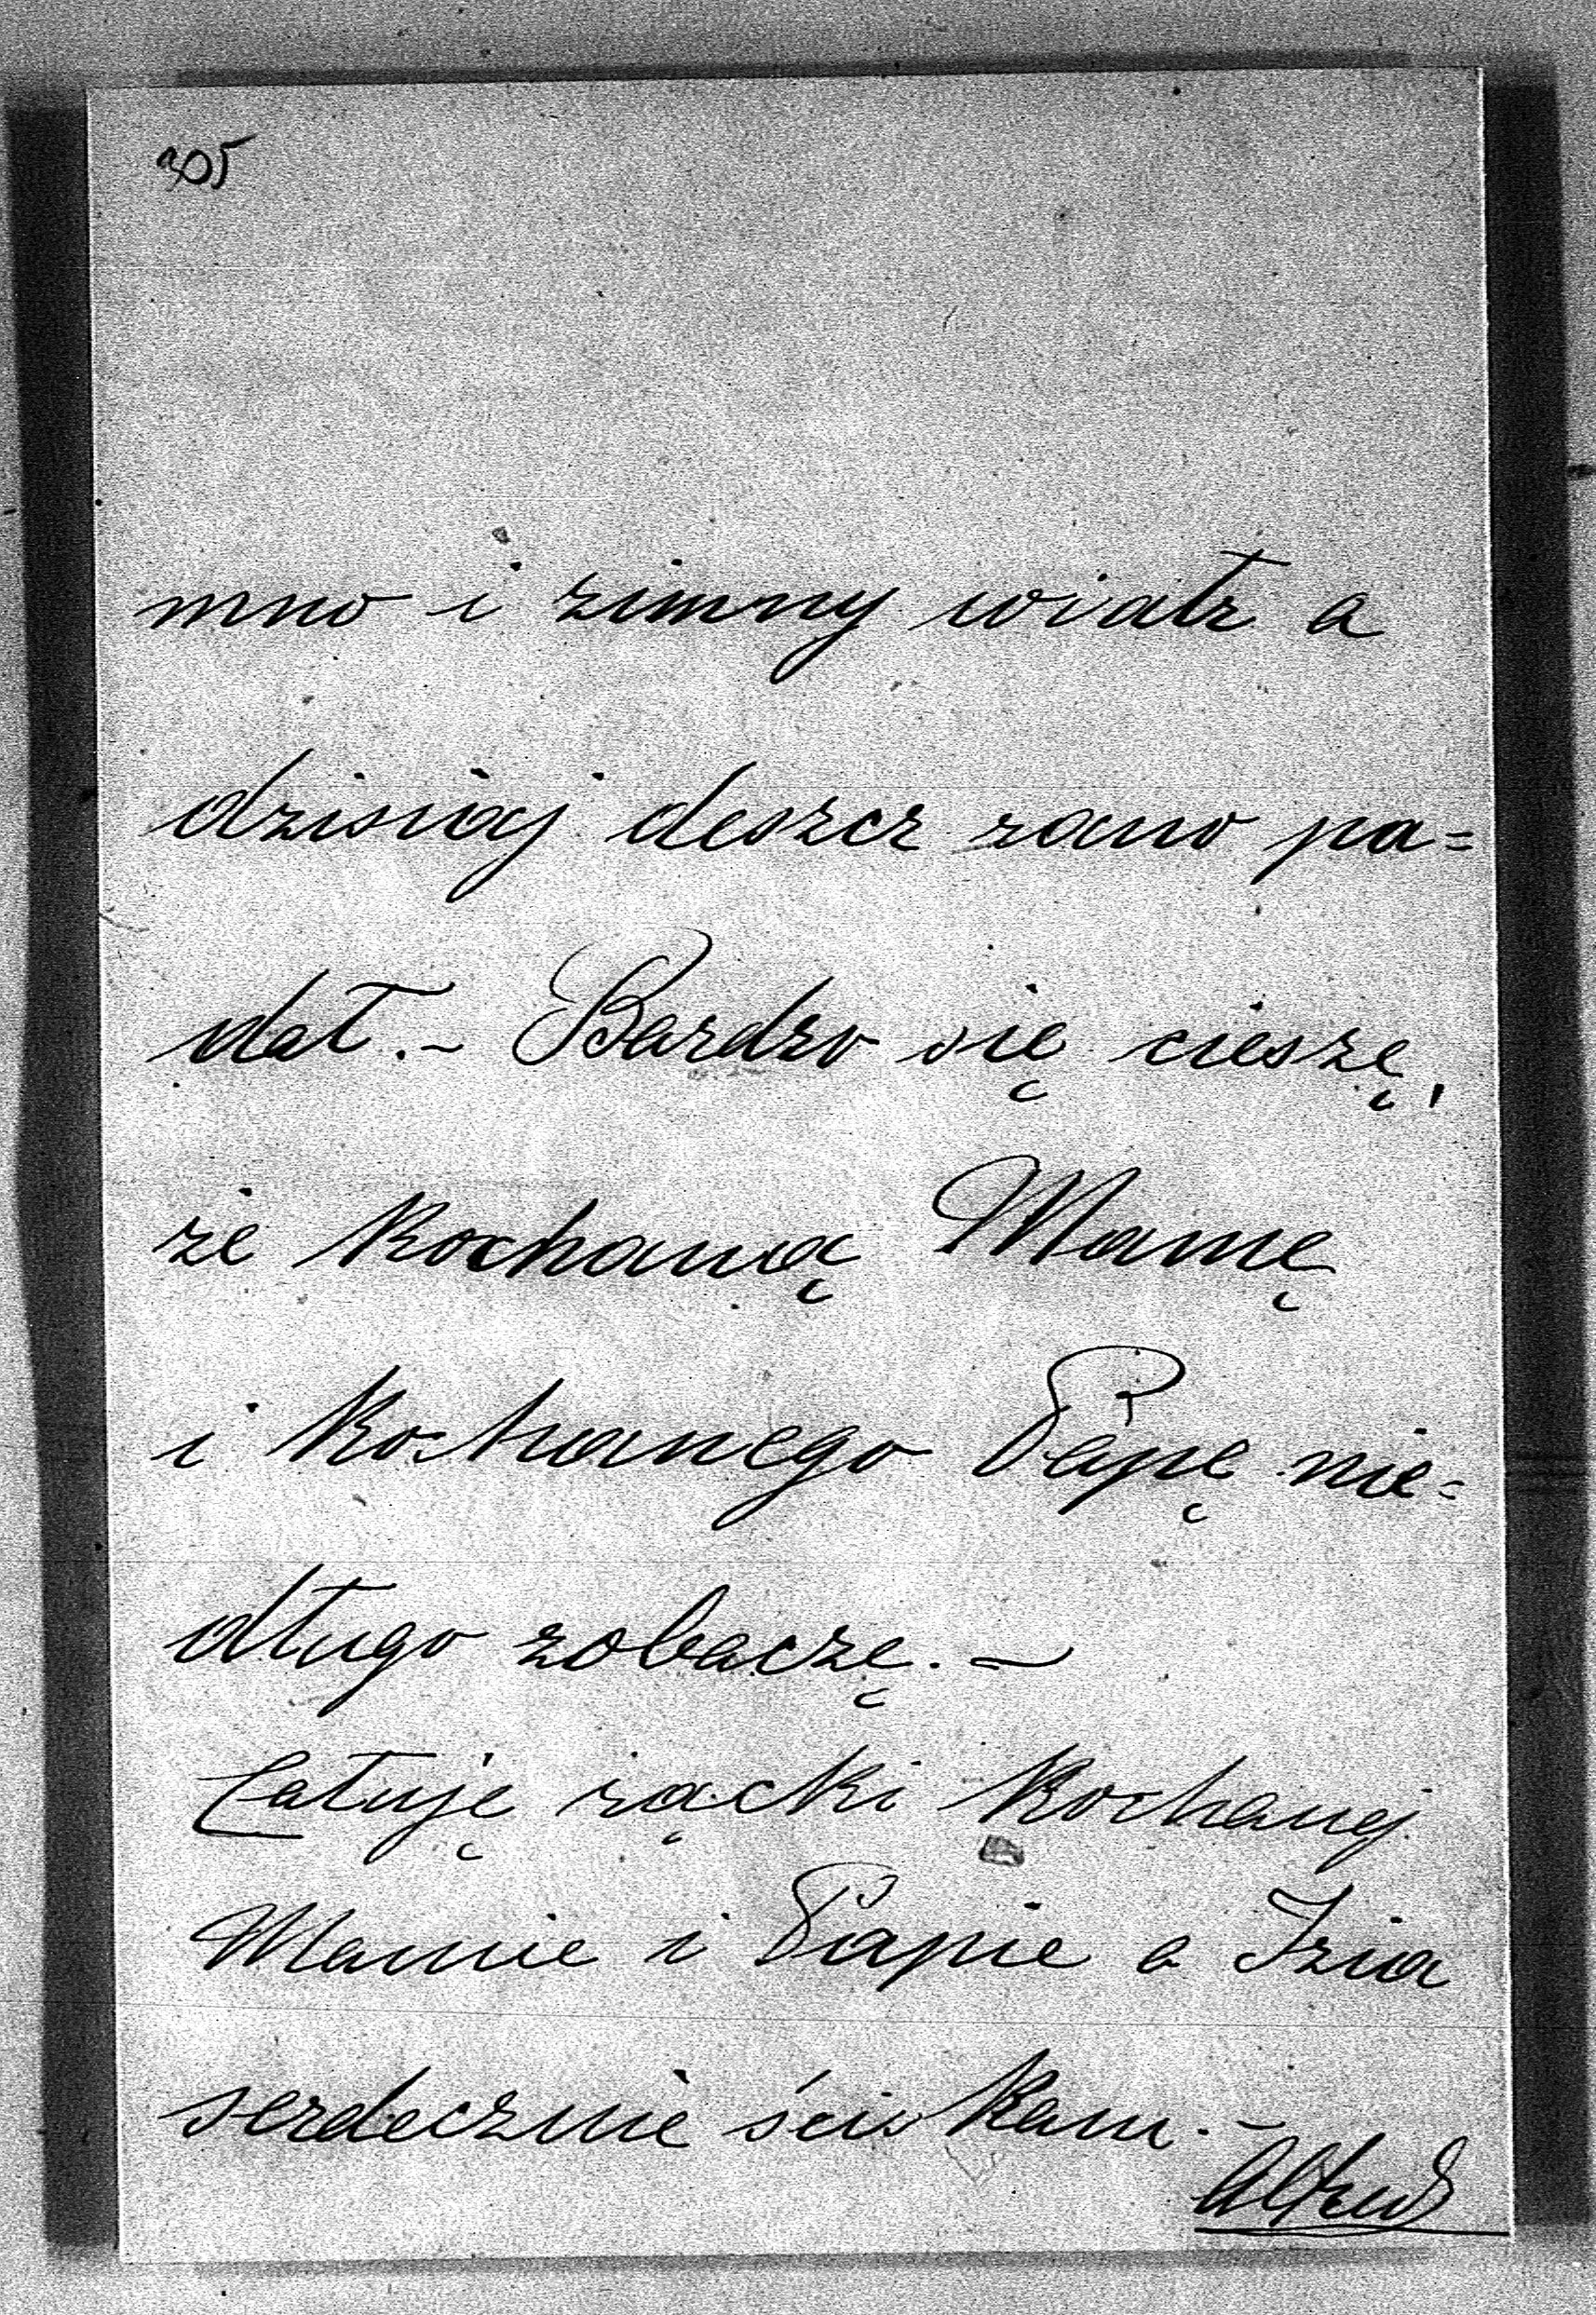 305
mno i zimny wiatr a
dzisiaj deszcz rano pa=
dał. – Bardzo się cieszę,
że kochaną Mamę
i kochanego Papę nie=
długo zobaczę. –
Całuję rączki kochanej
Mamie i Papie a Izia
serdecznie ściskam. –
Alfred